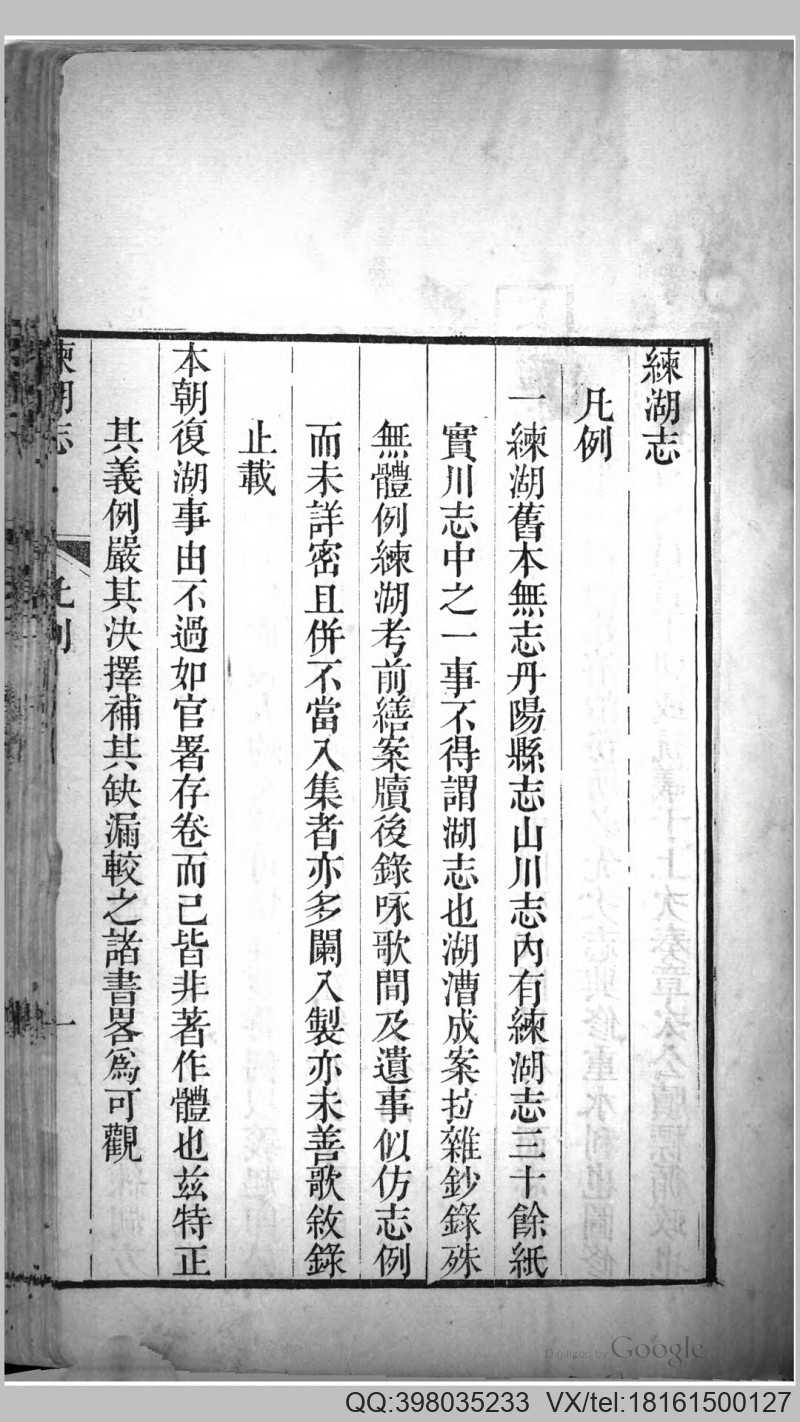 練湖志
凡例
一練湖舊本無志丹陽縣志山川志內有練湖志三十餘紙
實川志中之一事不得謂湖志也湖漕成案拉雜鈔錄殊
無體例練湖考前繕案牘後錄咏歌間及遺事似仿志例
而未詳密且併不當入集者亦多闌入製亦未善歌敘錄
止載
本朝復湖事由不過如官署存卷而已皆非著作體也茲特正
其義例嚴其決擇補其缺漏較之諸書畧爲可觀
練湖志
凡例
一
Digitized by Google
QQ:398035233 VX/tel:18161500127